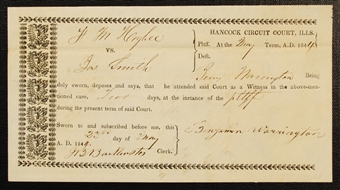 HANCOCK CIRCUIT COURT, ILLS.
F. M. Higbee
VS.
Jos Smith
Plff. At the May Term, A.D. 1844.
Deft.
Warrington Being
duly sworn, deposes and says, that he attended said Court as a Witness in the above-men-
tioned case, Two days, at the instance of the pltff
during the present term of said Court.
Sworn to and subscribed before me, this
22d day of May
A. D. 1844.
Clerk.
Benjamin Warrington